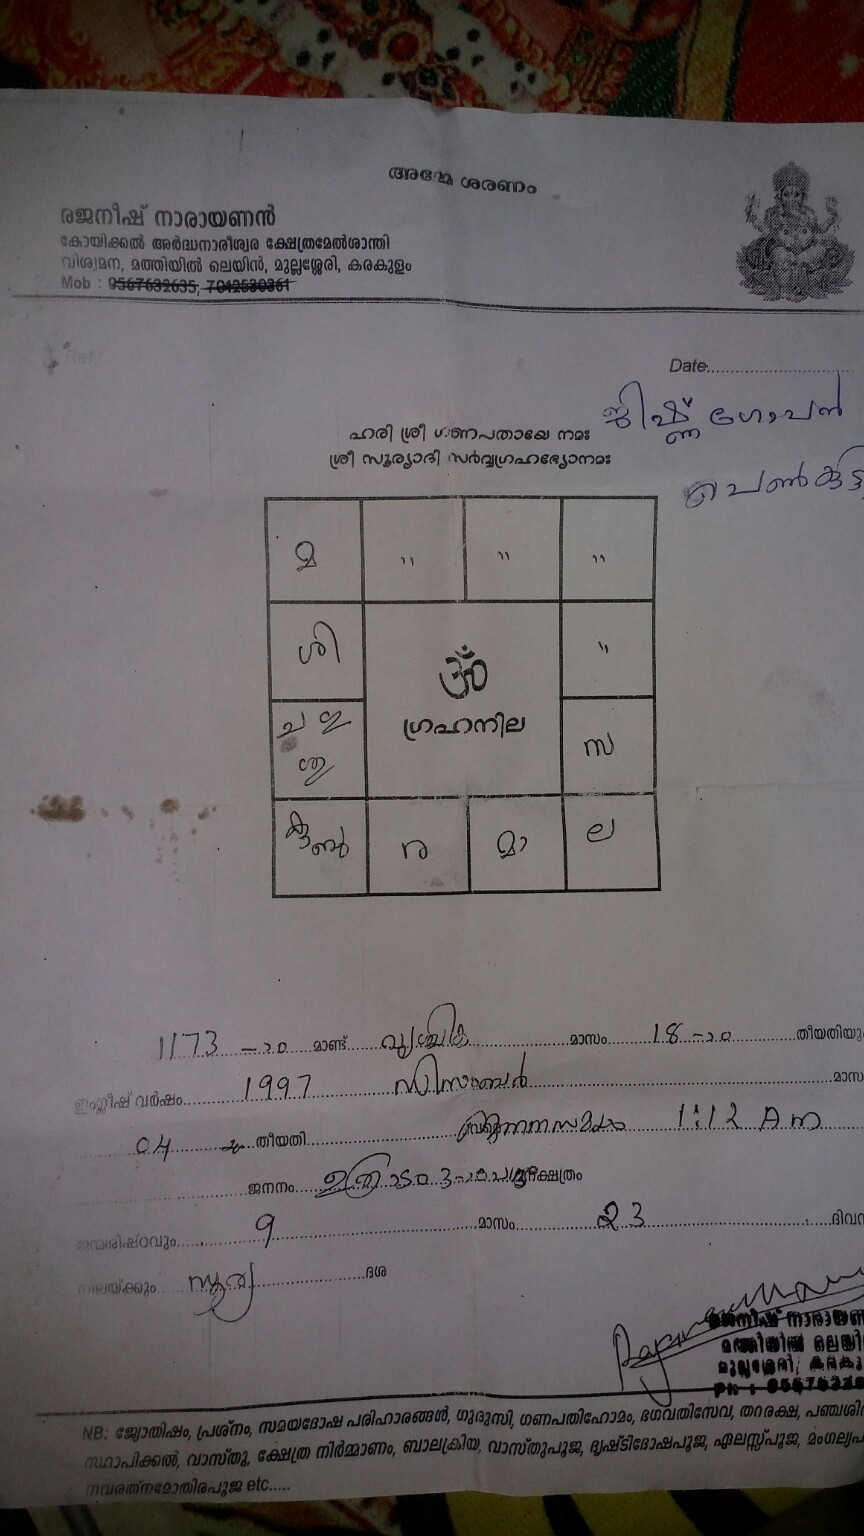 അമ്മേ ശരണം
രജനീഷ് നാരായണൻ
കോയിക്കൽ അർദ്ധനാരീശ്വര ക്ഷേത്രമേൽശാന്തി
വിശ്വമന, മത്തിയിൽ ലെയിൻ, മുല്ലശ്ശേരി, കരകുളം
Mob : 9567632635, 7012530361
Ref
Date
ജിഷ്ണ ഗോപൻ
ഹരി ശ്രീ ഗണപതായേ നമഃ
ശ്രീ സൂര്യാദി സർവ്വഗ്രഹഭ്യോനമഃ
പെൺകുട്ടി
മ " " "
ശി "
ഓം
ഗ്രഹനില
ച സ
ര മാ ല
1173 -ാം മാണ്ട് വൃശ്ചിക മാസം 18 -ാം തീയതിയും
ഇംഗ്ലീഷ് വർഷം 1997 ഡിസംബർ മാസ
04 തീയതി 1:12 Am
ജനനം ഉത്രാടം 3 നക്ഷത്രം
ജന്മശിഷ്ടവും 9 മാസം 23 ദിവസ
സൂര്യ ദശ
രജനീഷ് നാരായണ
മത്തിയിൽ ലെയി
മുല്ലശ്ശേരി, കരകു
NB: ജ്യോതിഷം, പ്രശ്നം, സമയദോഷ പരിഹാരങ്ങൾ, ഗുരുസി, ഗണപതിഹോമം, ഭഗവതിസേവ, തറരക്ഷ, പഞ്ചശി
സ്ഥാപിക്കൽ, വാസ്തു, ക്ഷേത്ര നിർമ്മാണം, ബാലക്രിയ, വാസ്തുപൂജ, ദൃഷ്ടിദോഷപൂജ, ഏലസ്സ്പൂജ, മംഗല്യപ
നവരത്നമോതിരപൂജ etc.....